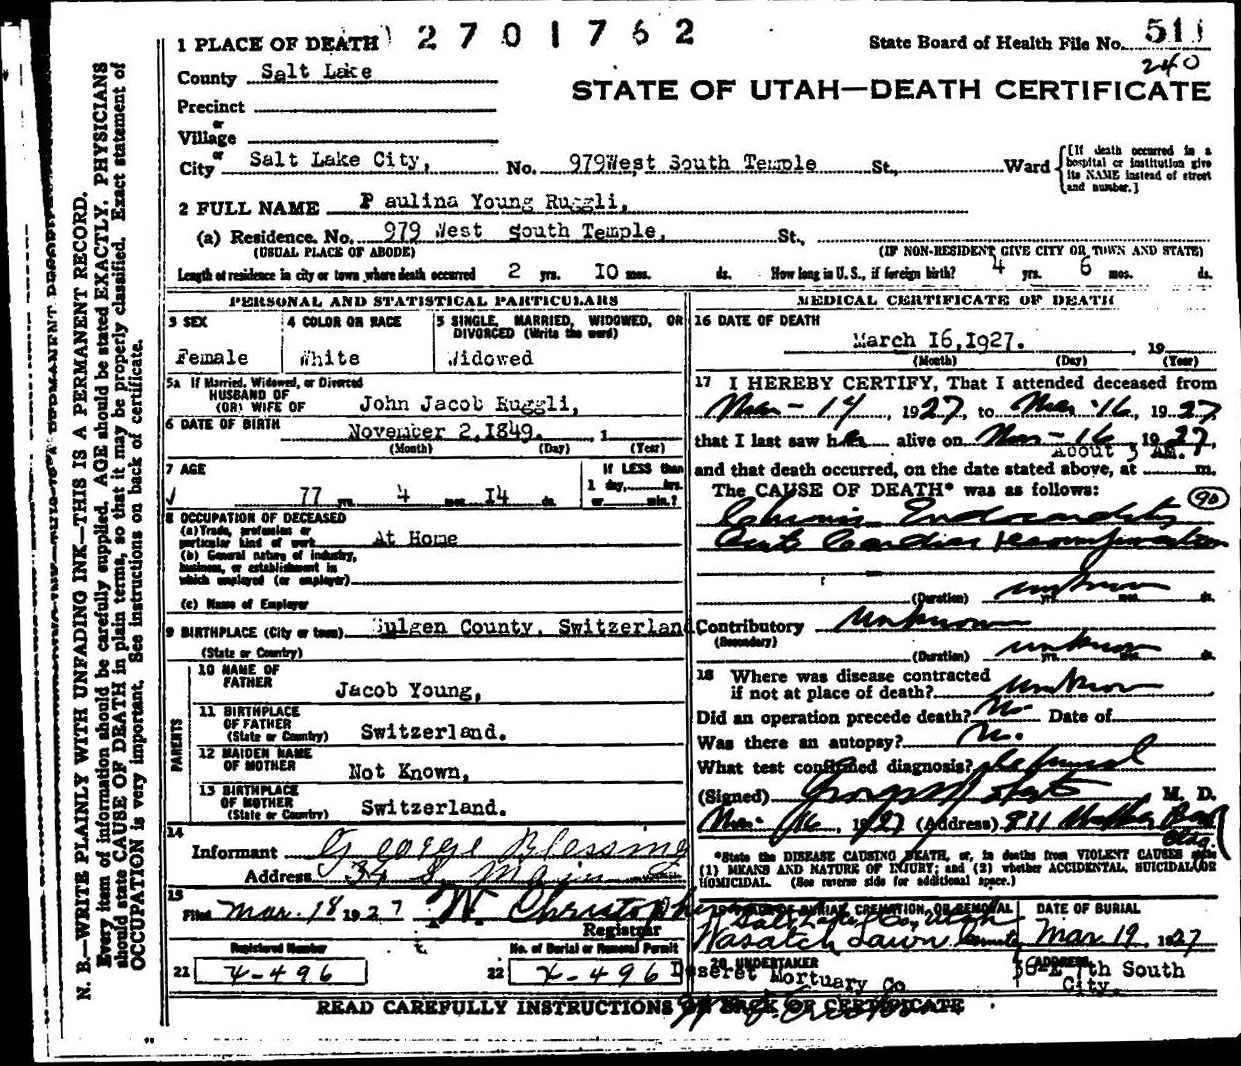 1 PLACE OF DEATH 2701762
State Board of Health File No. 511
240
County Salt Lake
STATE OF UTAH—DEATH CERTIFICATE
Precinct
or
Village
or
City Salt Lake City, No. 979West South Temple St., Ward
[If death occurred in a hospital or institution give its NAME instead of street and number.]
2 FULL NAME Paulina Young Ruggli,
(a) Residence. No. 979 West South Temple, St.,
(USUAL PLACE OF ABODE) (IF NON-RESIDENT GIVE CITY OR TOWN AND STATE)
Length of residence in city or town where death occurred 2 yrs. 10 mos. ds. How long in U.S., if foreign birth? 4 yrs. 6 mos. ds.
PERSONAL AND STATISTICAL PARTICULARS
3 SEX
Female
4 COLOR OR RACE
White
5 SINGLE, MARRIED, WIDOWED, OR DIVORCED (Write the word)
Widowed
5a If Married, Widowed, or Divorced
HUSBAND OF
(OR) WIFE OF John Jacob Ruggli,
6 DATE OF BIRTH November 2,1849. , 1
(Month) (Day) (Year)
7 AGE
77 yrs. 4 mos. 14 ds.
If LESS than
1 day, hrs.
or min.?
8 OCCUPATION OF DECEASED
(a) Trade, profession or
particular kind of work At Home
(b) General nature of industry,
business, or establishment in
which employed (or employer)
(c) Name of Employer
9 BIRTHPLACE (City or town) Sulgen County, Switzerland
(State or Country)
PARENTS
10 NAME OF
FATHER Jacob Young,
11 BIRTHPLACE
OF FATHER
(State or Country) Switzerland.
12 MAIDEN NAME
OF MOTHER Not Known,
13 BIRTHPLACE
OF MOTHER
(State or Country) Switzerland.
14
Informant George Blessing
Address 34 S. Main
15
Filed Mar. 18 1927 W. Christopher
Registrar
Registered Number
21 X-496
No. of Burial or Removal Permit
22 X-496
MEDICAL CERTIFICATE OF DEATH
16 DATE OF DEATH
March 16,1927. , 19
(Month) (Day) (Year)
17 I HEREBY CERTIFY, That I attended deceased from
Mar-14, 1927, to Mar-16, 1927
that I last saw her alive on Mar-16, 1927,
About 3 AM.
and that death occurred, on the date stated above, at m.
The CAUSE OF DEATH* was as follows: 90
Chronic Endocarditis
Acute Cardiac Decompensation
(Duration) unknown yrs. mos. ds.
Contributory Unknown
(Secondary)
(Duration) unknown yrs. mos. ds.
18 Where was disease contracted
if not at place of death? unknown
Did an operation precede death? No Date of
Was there an autopsy? No.
What test confirmed diagnosis?
(Signed) M. D.
Mar. 16, 1927 (Address) 811 Bldg.
*State the DISEASE CAUSING DEATH, or, in deaths from VIOLENT CAUSES state
(1) MEANS AND NATURE OF INJURY; and (2) whether ACCIDENTAL, SUICIDAL OR
HOMICIDAL. (See reverse side for additional space.)
19 PLACE OF BURIAL, CREMATION, OR REMOVAL
Salt Lake Co, Utah
Wasatch Lawn Cemetery
DATE OF BURIAL
Mar. 19 1927
20 UNDERTAKER
Deseret Mortuary Co
ADDRESS
36-E 7th South
City.
READ CAREFULLY INSTRUCTIONS ON BACK OF CERTIFICATE
N. B.—WRITE PLAINLY WITH UNFADING INK—THIS IS A PERMANENT RECORD.
Every item of information should be carefully supplied. AGE should be stated EXACTLY. PHYSICIANS
should state CAUSE OF DEATH in plain terms, so that it may be properly classified. Exact statement of
OCCUPATION is very important. See instructions on back of certificate.